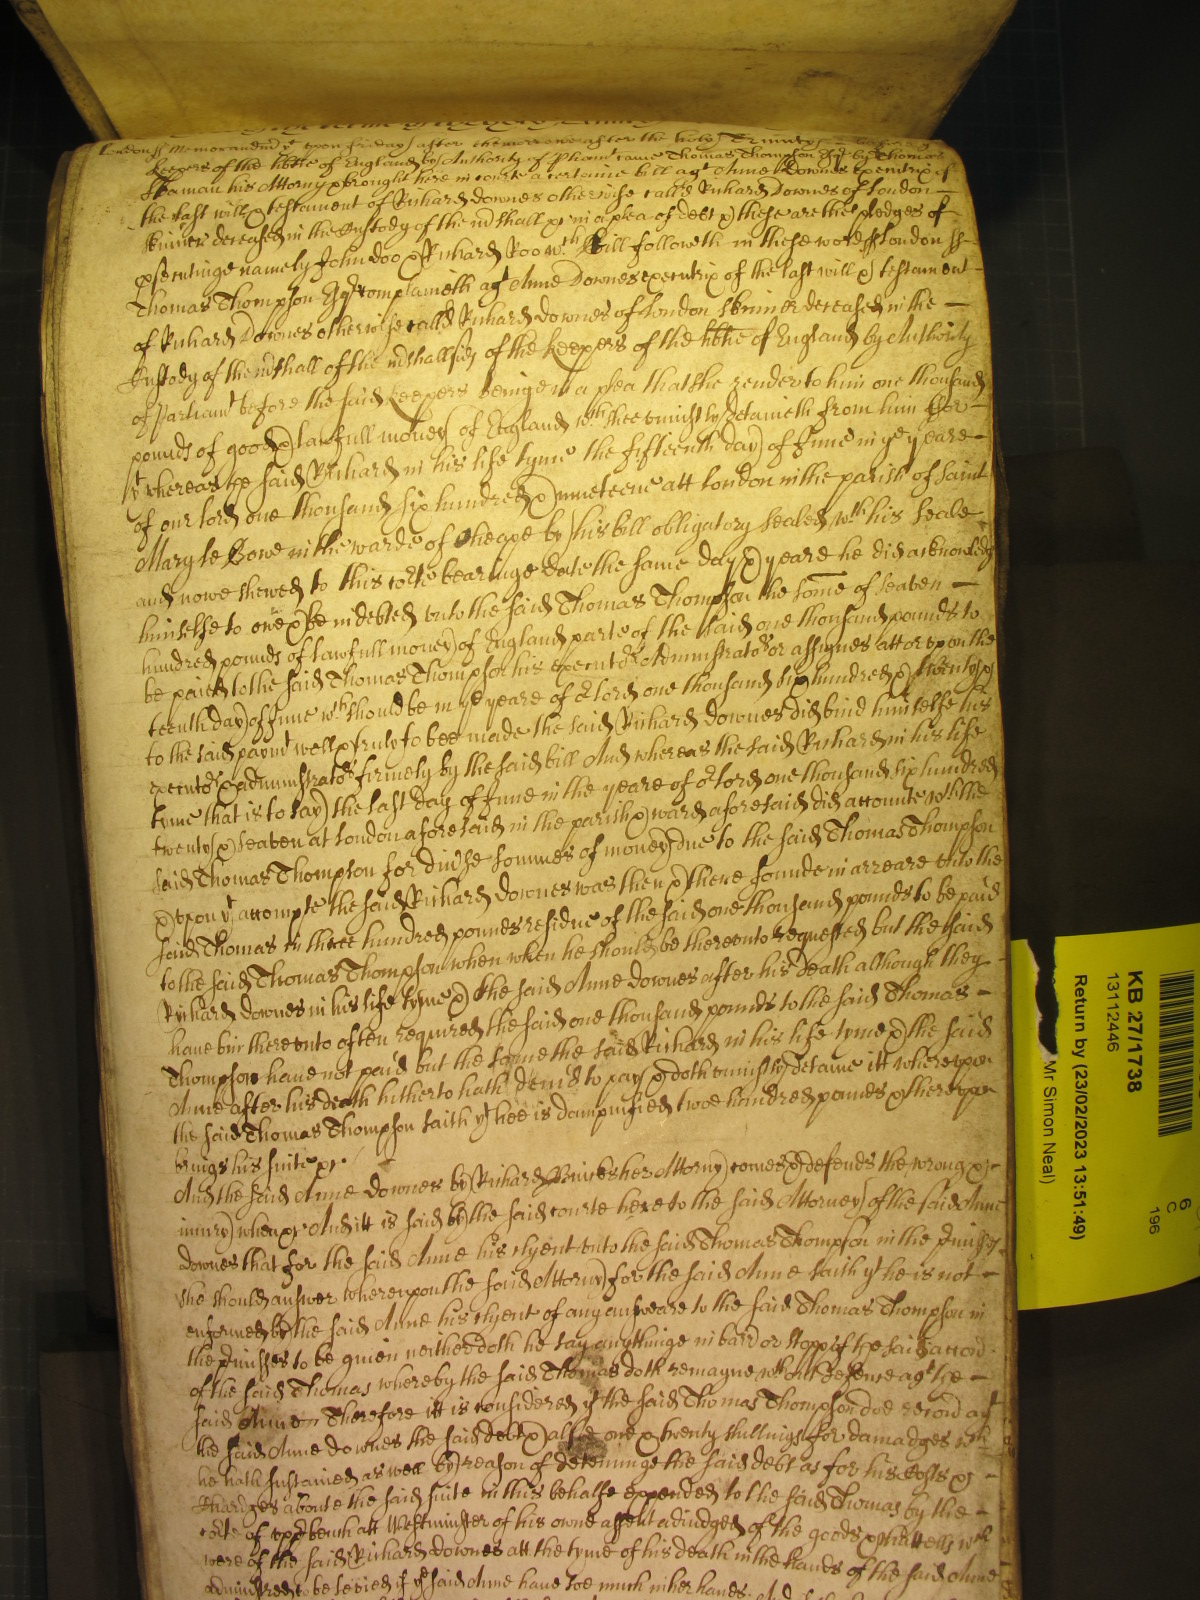 London ss Memorandm yt upon Friday after the morrow after the holy Trinity
keepers of the libtie of England by Authority of Parliamt came Thomas Thompson Esqr by Thomas
Seaman his Attorny & brought here in courte a certaine bill agt Anne Downes executrix of
the last will & testament of Richard Downes otherwise called Richard Downes of London
skinner deceased in the Custody of the mrshall &c in a plea of debt & these are the pledges of
psecutinge namely John doo & Richard Roo wch Bill followeth in these words ss London ss
Thomas Thompson Esqr complaineth agt Anne Downes executrix of the last will & testament
of Richard Downes otherwise called Richard Downes of London skinner deceased in the
Custody of the mrshall of the mrshallsey of the keepers of the libtie of England by Authority
of Parliamt before the said keepers beinge in a plea that she render to him one thousand
pounds of good & lawfull money of England wch shee uniustly detaineth from him For
yt whereas the said Richard in his life tyme the fifteenth day of June in ye yeare
of our lord one thousand six hundred & nineteene att London in the parish of Saint
Mary le Bowe in the warde of Cheape by his bill obligatory sealed wth his seale
and nowe shewed to this corte bearinge date the same day & yeare he did acknowledg
himselfe to owe & be indebted unto the said Thomas Thompson the some of seaven
hundred pounds of lawfull money of England parte of the said one thousand pounds to
be paied to the said Thomas Thompson his executors Administrators or assignes att or upon the
teenth day of June wch should be in ye yeare of or lord one thousand six hundred & twenty &
to the said paymt well & truly to bee made the said Richard Downes did bind himselfe his
executors & administrators firmely by the said bill And whereas the said Richard in his life
tyme that is to say the last day of June in the yeare of or lord one thousand six hundred
twenty & seaven at London aforesaid in the parish & ward aforesaid did accompte wth the
said Thomas Thompson for divse sommes of money due to the said Thomas Thompson
& upon yt accompte the said Richard Downes was then & there founde in arreare unto the
said Thomas in three hundred pounds residue of the said one thousand pounds to be paid
to the said Thomas Thompson when when he should be thereunto requested but the said
Richard Downes in his life tyme & the said Anne Downes after his death although they
have bin thereunto often required the said one thousand pounds to the said Thomas
Thompson have not paid but the same the said Richard in his life tyme & the said
Anne after his death hitherto hath denied to pay & doth uniustly detaine itt whereupon
the said Thomas Thompson saith yt hee is dampnified twoe hundred pounds & thereupon
brings his suite &c.
And the said Anne Downes by Richard her Attorny comes & defends the wrong &
iniury when &c And itt is said by the said courte here to the said Attorney of the said Anne
Downes that for the said Anne his clyent unto the said Thomas Thompson in the pmisses
she should answer whereupon the said Attorny for the said Anne saith yt he is not
enformed by the said Anne his clyent of any answeare to the said Thomas Thompson in
the pmisses to be given neither doth he say anythinge in barr or stopp of the said accon
of the said Thomas whereby the said Thomas doth remayne wthout defense agt the
said Anne Therefore itt is considered yt the said Thomas Thompson doe recovr agt
the said Anne Downes the said debt & alsoe one & twenty shillings for damadges wch
he hath susteined as well by reason of deteininge the said debt as for his Costs &
Chardges aboute the said suite in this behalfe expended to the said Thomas by the
corte of uppr bench att Westminster of his owne assent adiudged of the goods & chattells wch
were of the said Richard Downes att the tyme of his death in the hands of the said Anne
administred to be levied if ye said Anne have soe much in her hands. And
KB 27/1738
13112446
Return by (23/02/2023 13:51:49)
Mr Simon Neal)
6
C
196